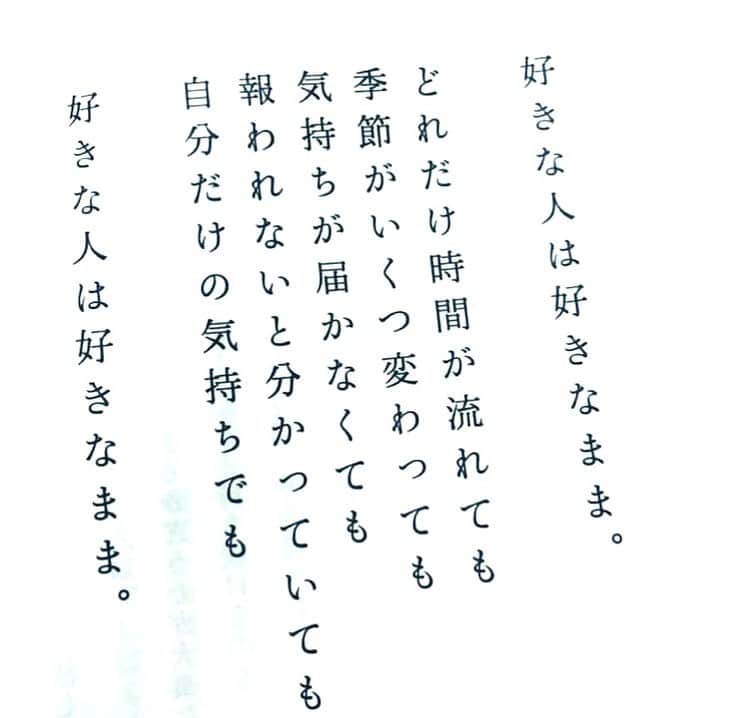 好きな人は好きなまま。
どれだけ時間が流れても
季節がいくつ変わっても
気持ちが届かなくても
報われないと分かっていても
自分だけの気持ちでも
好きな人は好きなまま。